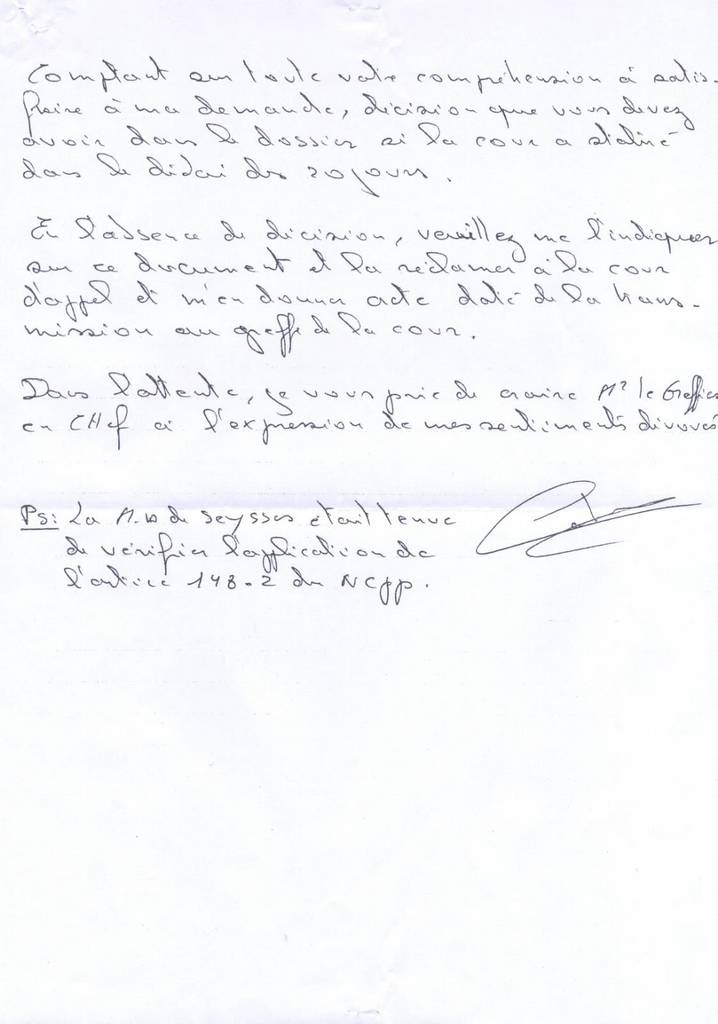 Comptant sur toute votre compréhension à satis-
faire à ma demande, décision que vous devez
avoir dans le dossier si la cour a statué
dans le délai des 20 jours.
En l'absence de décision, veuillez me l'indiquer
sur ce document et la réclamer à la cour
d'appel et m'en donner acte daté de la trans-
mission au greffe de la cour.
Dans l'attente, je vous prie de croire Mr le Greffier
en CHef à l'expression de mes sentiments dévoués
Ps: La M.A de Seysses était tenue
de vérifier l'application de
l'article 148-2 du NCpp.